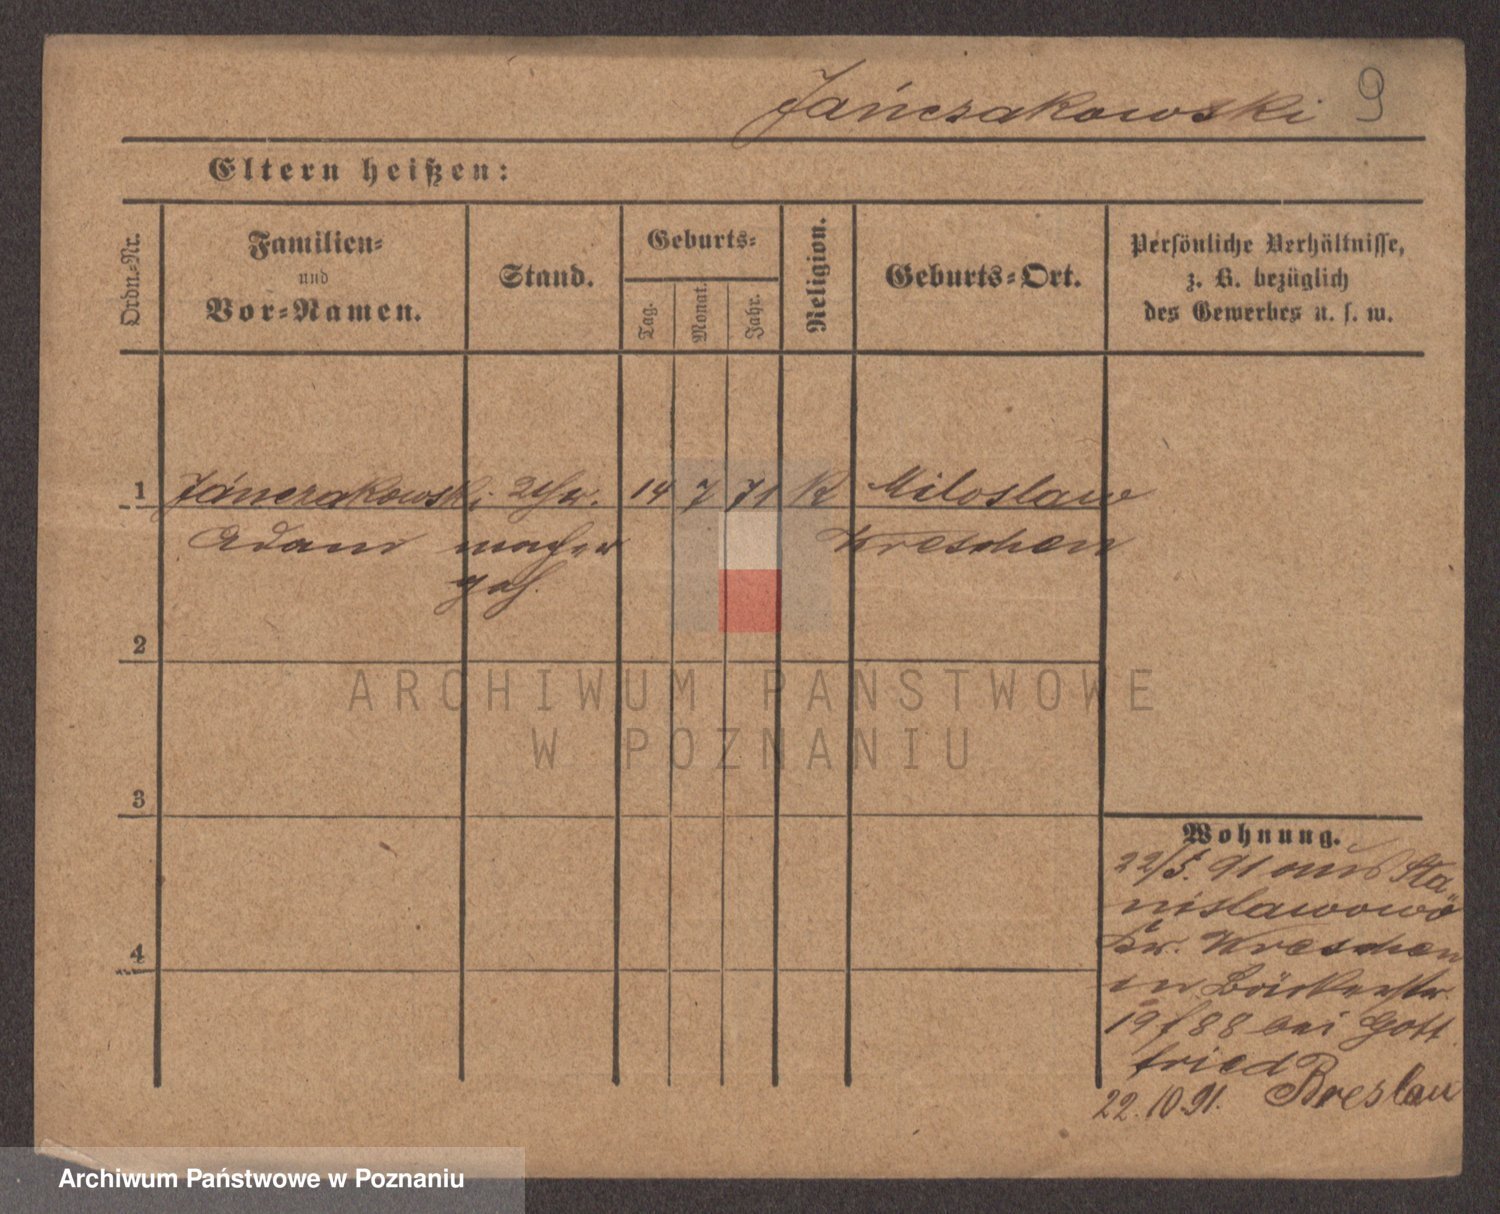 Jánczakowski 9
Eltern heißen:
Ordn.-Nr.
Familien-
und
Vor-Namen.
Stand.
Geburts-
Tag.
Monat.
Jahr.
Religion.
Geburts-Ort.
Persönliche Verhältnisse,
z. B. bezüglich
des Gewerbes u. s. w.
1 Jánczakowski Uhr- 14 7 71 K Miloslaw
Adam macher Wreschen
geh.
2
3
4
Wohnung.
22/5. 91 aus Sta-
nislawowo
Kr. Wreschen
in Bäckerstr.
19 f 88 bei Gott
fried
22.10.91. Breslau
ARCHIWUM PAŃSTWOWE
W POZNANIU
Archiwum Państwowe w Poznaniu